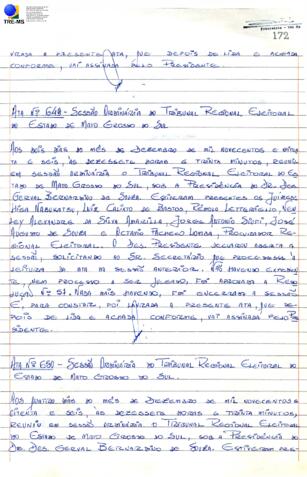 TRE-MS
172
VRADA A PRESENTE ATA, QUE DEPOIS DE LIDA E ACHADA
CONFORME, VAI ASSINADA PELO PRESIDENTE.
ATA Nº 649 - SESSÃO ORDINÁRIA DO TRIBUNAL REGIONAL ELEITORAL
DO ESTADO DE MATO GROSSO DO SUL.
AOS DOIS DIAS DO MÊS DE DEZEMBRO DE MIL NOVECENTOS E OITENTA
E SEIS, ÀS DEZESSETE HORAS E TRINTA MINUTOS, REUNIU
EM SESSÃO ORDINÁRIA O TRIBUNAL REGIONAL ELEITORAL DO ES-
TADO DE MATO GROSSO DO SUL, SOB A PRESIDÊNCIA DO DR. DES.
GERVAL BERNARDINO DE SOUZA. ESTIVERAM PRESENTES OS JUÍZES
HIGA NABUKATSU, LUIZ CALIXTO DE BASTOS, ROMERO
ALEXANDRE DA SILVA, JORGE ANTONIO SIUFI, JOSÉ
AUGUSTO DE SOUZA E OCTAVIO PACHECO LOMBA, PROCURADOR RE-
GIONAL ELEITORAL. O DES. PRESIDENTE DECLAROU ABERTA A
SESSÃO, SOLICITANDO AO SR. SECRETÁRIO QUE PROCEDESSE À
LEITURA DA ATA DA SESSÃO ANTERIOR. NÃO HAVENDO EXPEDIEN-
TE, NEM PROCESSO A SER JULGADO, FOI APROVADA A RESO-
LUÇÃO Nº 51. NADA MAIS HAVENDO, FOI ENCERRADA A SESSÃO
E, PARA CONSTAR, FOI LAVRADA A PRESENTE ATA, QUE DE-
POIS DE LIDA E ACHADA CONFORME, VAI ASSINADA PELO PRE-
SIDENTE.
ATA Nº 650 - SESSÃO ORDINÁRIA DO TRIBUNAL REGIONAL ELEITORAL
DO ESTADO DE MATO GROSSO DO SUL.
AOS QUATRO DIAS DO MÊS DE DEZEMBRO DE MIL NOVECENTOS E
OITENTA E SEIS, ÀS DEZESSETE HORAS E TRINTA MINUTOS,
REUNIU EM SESSÃO ORDINÁRIA O TRIBUNAL REGIONAL ELEITORAL
DO ESTADO DE MATO GROSSO DO SUL, SOB A PRESIDÊNCIA DO
DR. DES. GERVAL BERNARDINO DE SOUZA. ESTIVERAM PRES-